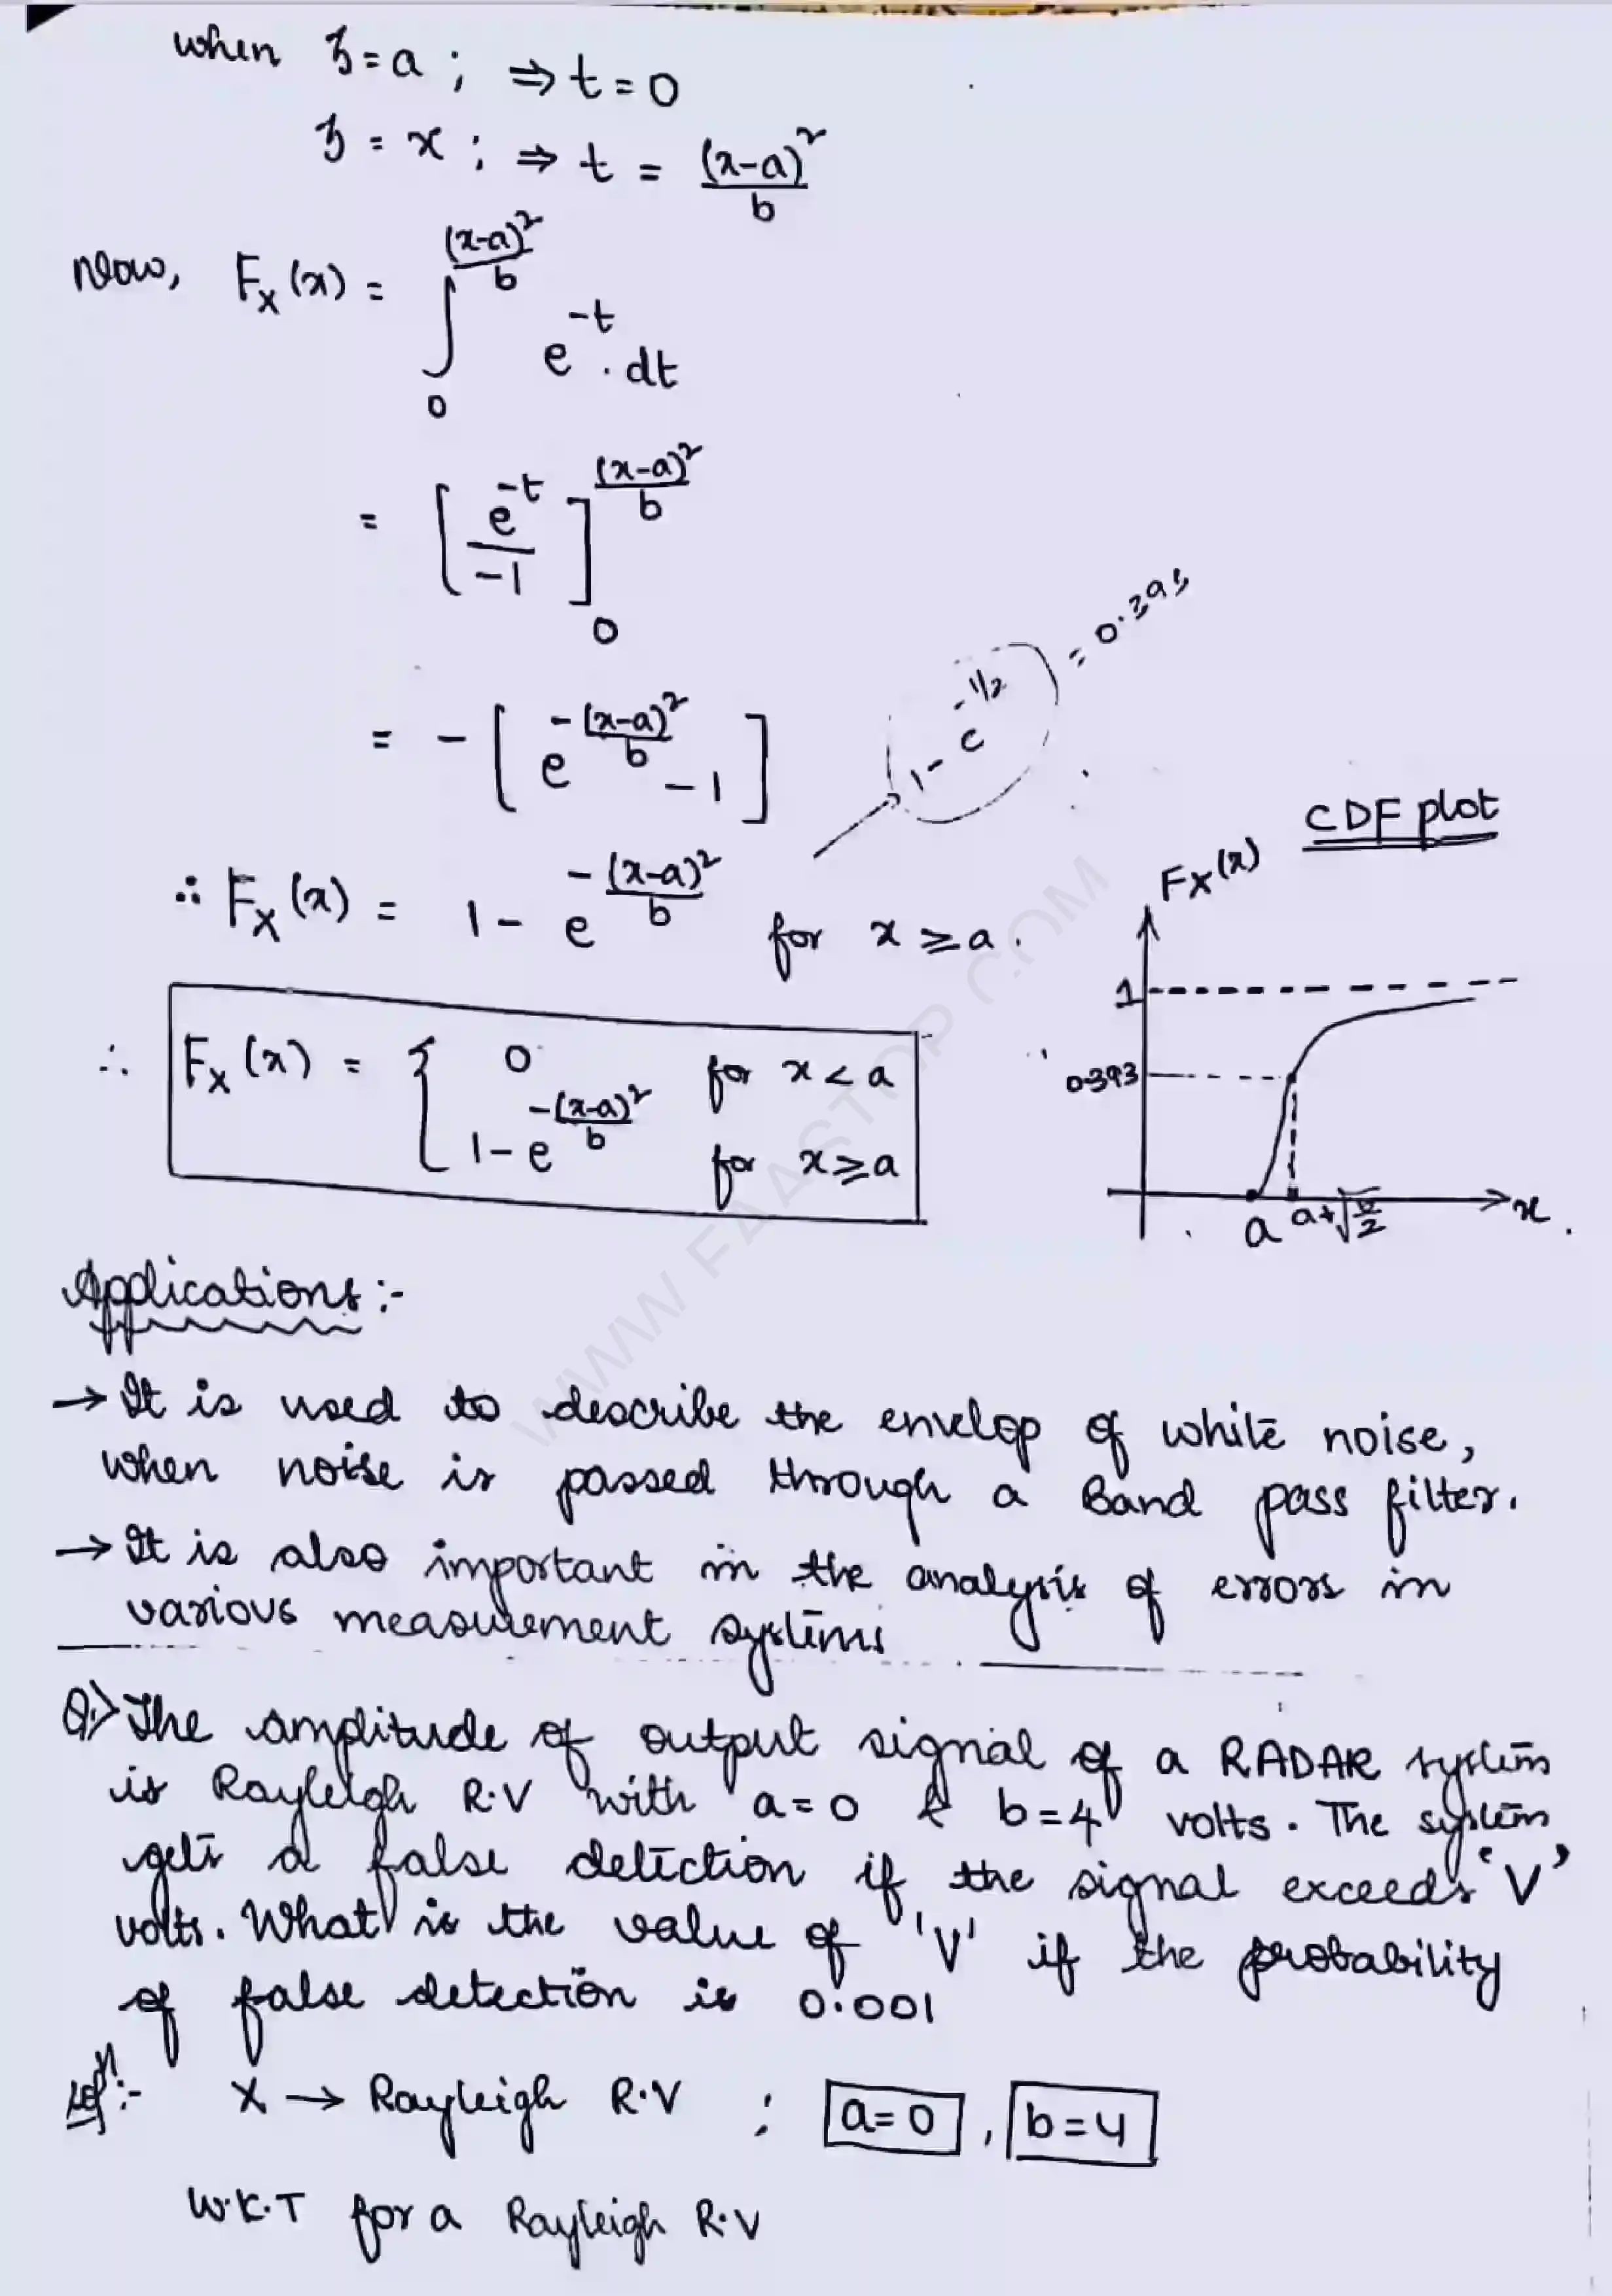 when ʒ=a ; ⇒ t=0
ʒ = x ; ⇒ t = (x-a)²/b
Now, Fx(x) = ∫₀^((x-a)²/b) e^-t . dt
= [e^-t/-1]₀^((x-a)²/b)
= - [e^(-(x-a)²/b) - 1]
1 - e^(-1/2) = 0.393
∴ Fx(x) = 1 - e^(-(x-a)²/b) for x ≥ a .
∴ Fx(x) = { 0 for x < a
1 - e^(-(x-a)²/b) for x ≥ a
CDF plot
Fx(x)
1
0.393
a a+√(b/2) x
Applications :-
→ It is used to describe the envelop of white noise,
when noise is passed through a Band pass filter.
→ It is also important in the analysis of errors in
various measurement systems
Q.> The amplitude of output signal of a RADAR system
is Rayleigh R.V with a=0 & b=4 volts. The system
gets a false detection if the signal exceeds 'V'
volts. What is the value of 'V' if the probability
of false detection is 0.001
Solⁿ:- X → Rayleigh R.V ; a=0 , b=4
W.K.T for a Rayleigh R.V
WWW.FAASTOP.COM